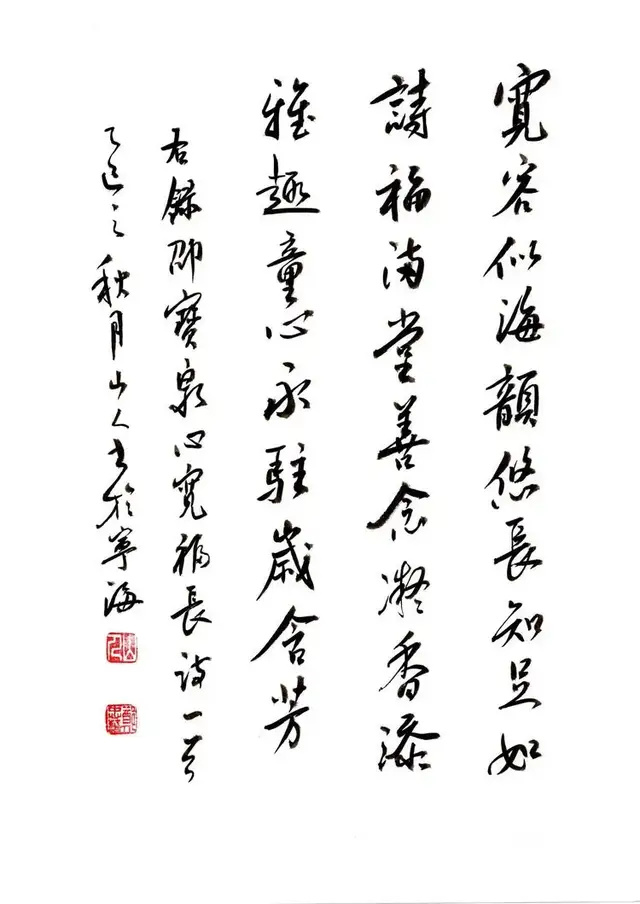 寬容似海韻悠長知足如
詩福滿堂善念凝香添
雅趣童心永駐歲含芳
右錄邵寶泉心寬福長詩一首
乙巳之秋月山人書於寧海